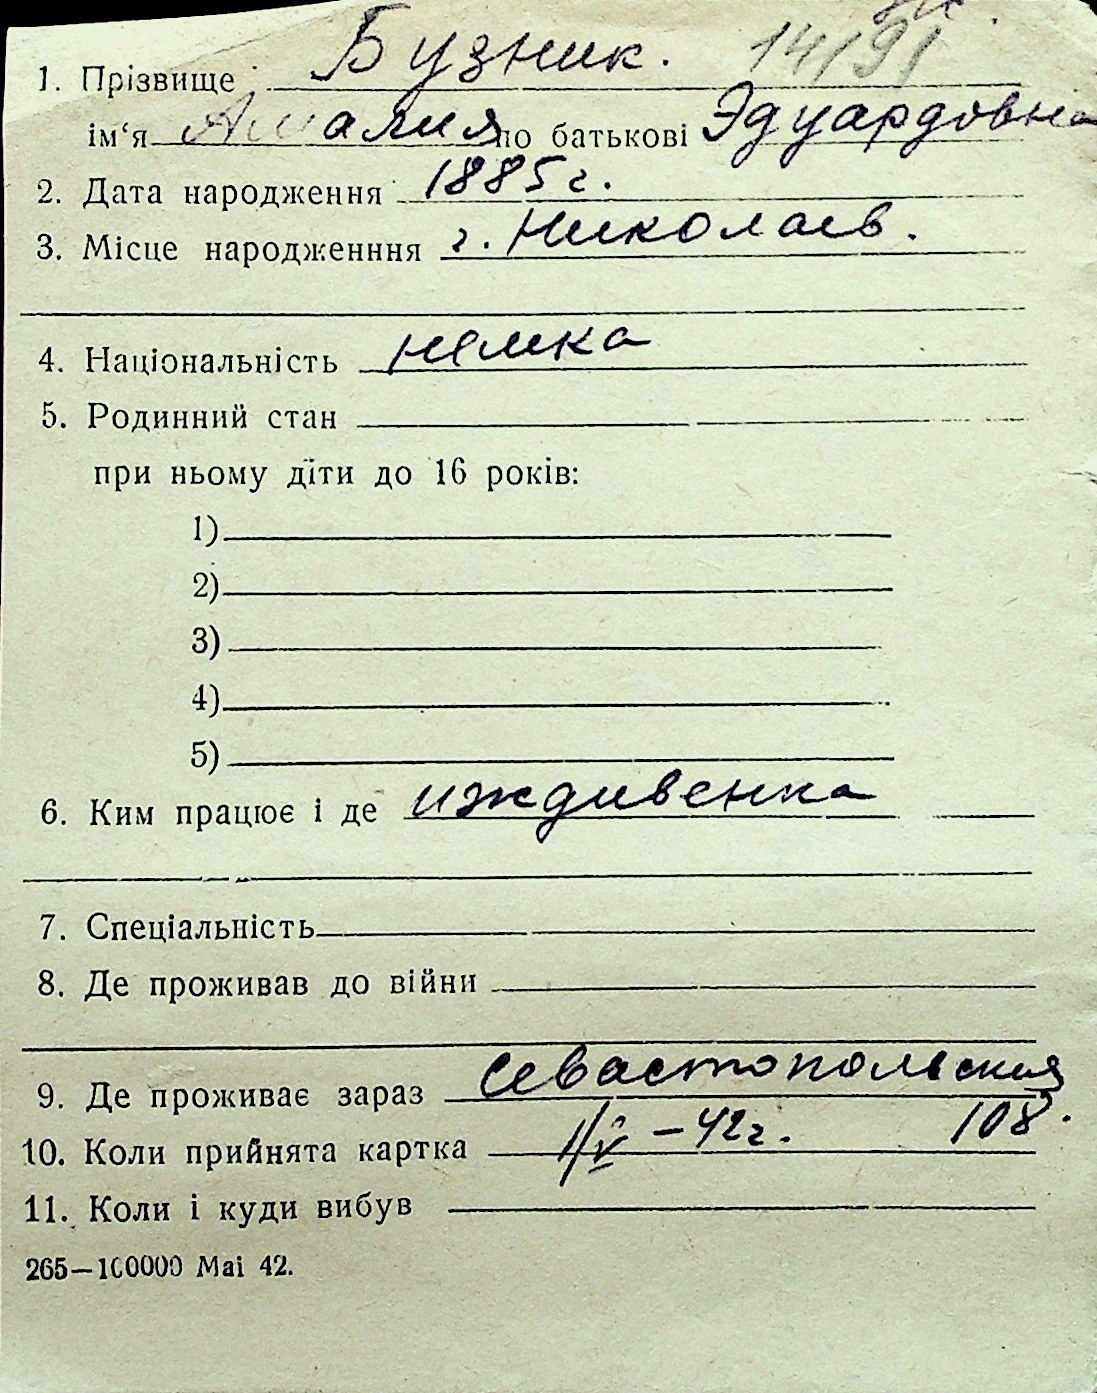 1. Прізвище Бузник. 14/91
ім‘я Амалия по батькові Эдуардовна
2. Дата народження 1885 г.
3. Місце народженння г. Николаев.
4. Національність немка
5. Родинний стан
при ньому діти до 16 років:
1)
2)
3)
4)
5)
6. Ким працює і де иждивенка
7. Спеціальність
8. Де проживав до війни
9. Де проживає зараз Севастопольская
108.
10. Коли прийнята картка 1/V – 42 г.
11. Коли і куди вибув
265—100000 Mai 42.